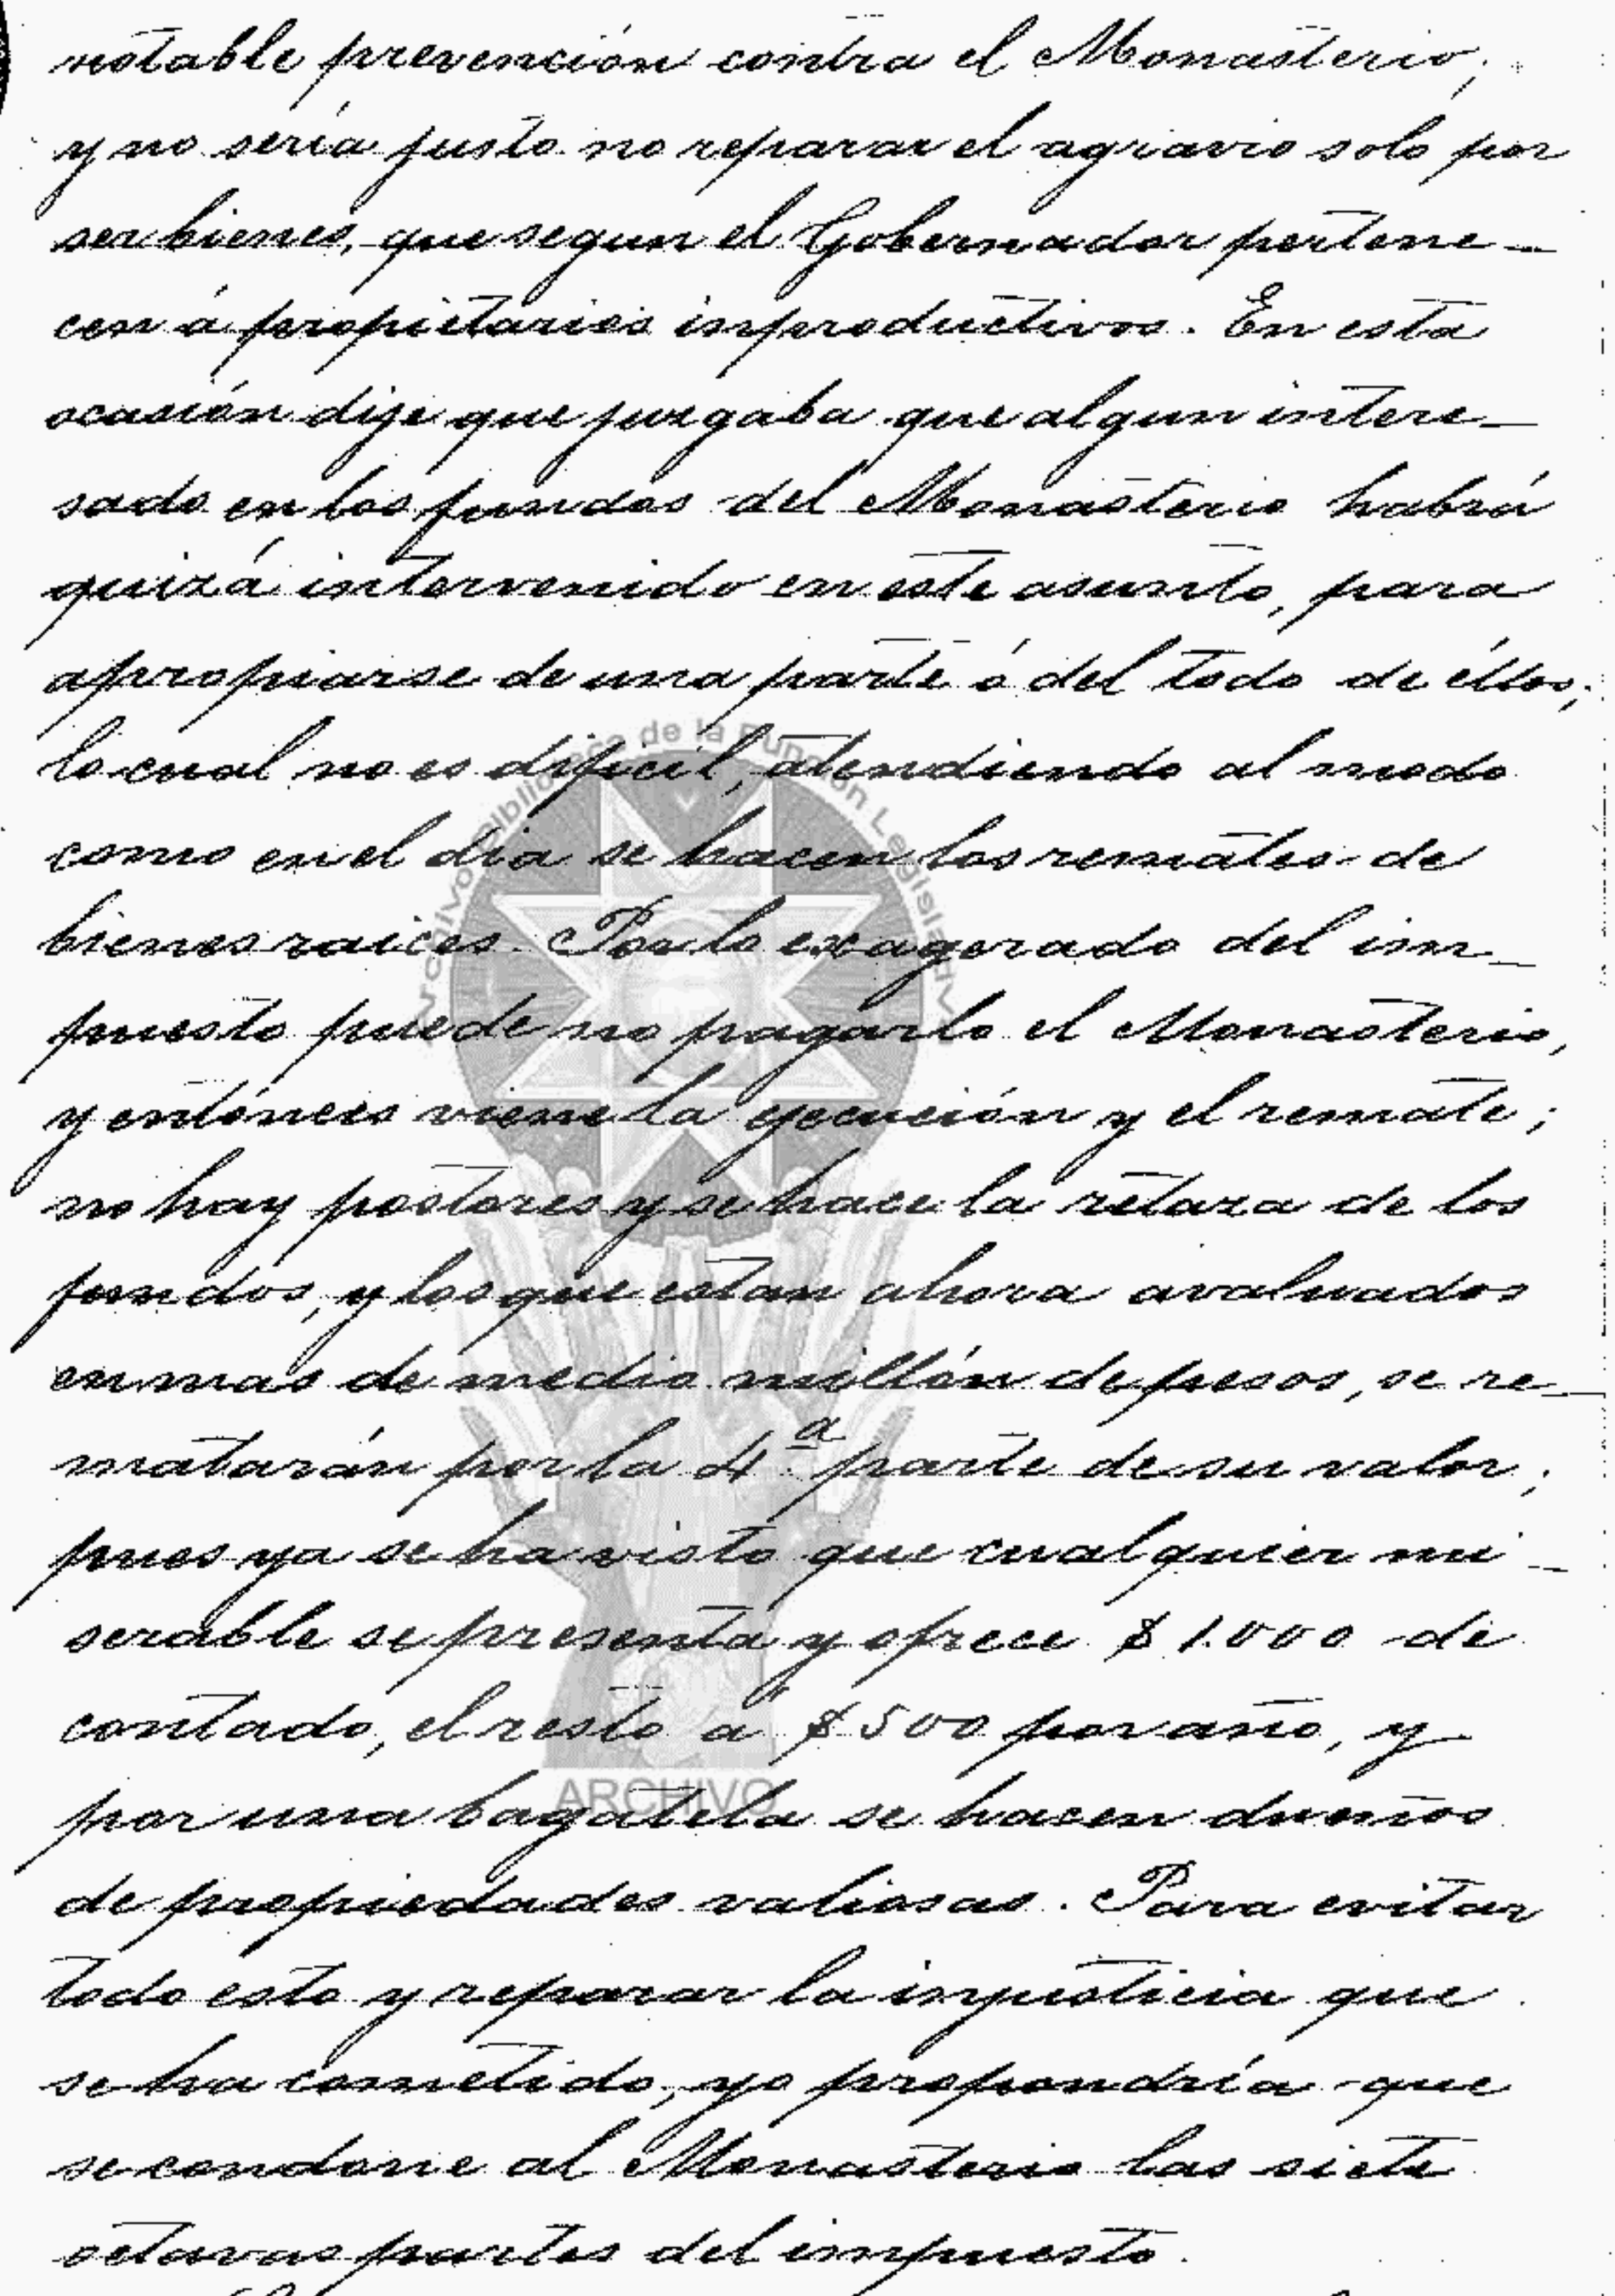 notable prevención contra el Monasterio;
y no sería justo no reparar el agravio solo por
ser bienes, que segun el Gobernador pertene-
cen á propietarios improductivos. En esta
ocasión dije que juzgaba que algun intere-
sado en los fundos del Monasterio habrá
quizá intervenido en este asunto, para
apropiarse de una parte ó del todo de éllos;
lo cual no es dificil, atendiendo al modo
como en el dia se hacen los remates de
bienes raices. Por lo exagerado del im-
puesto puede no pagarlo el Monasterio,
y entónces viene la ejecución y el remate;
no hay postores y se hace la retaza de los
fundos, y los que estan ahora avaluados
en mas de medio millón de pesos, se re-
matarán por la 4ª parte de su valor;
pues ya se ha visto que cualquier mi-
serable se presenta y ofrece $ 1.000 de
contado, el resto a $ 500 por año, y
por una bagatela se hacen dueños
de propiedades valiosas. Para evitar
todo esto y reparar la injusticia que
se ha cometido, yo propondría que
se condone al Monasterio las siete
octavas partes del impuesto.
Archivo Biblioteca de la Función Legislativa
ARCHIVO